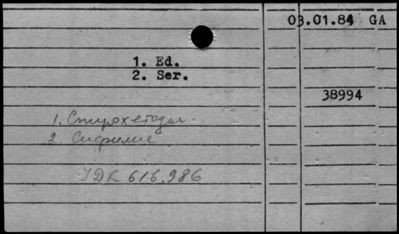 03.01.84 GA
1. Ed.
2. Ser.
38994
1. Спирохетозы.
2. Сифилис
УДК 616.986